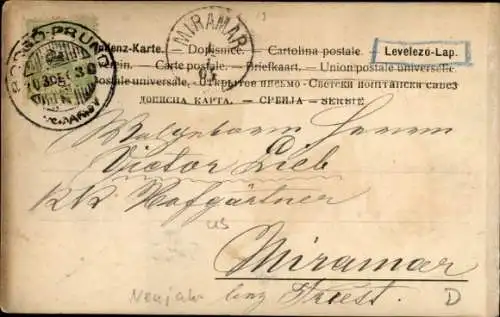 BORGO-PRUND
MIRAMAR
Correspondenz-Karte. — Dopisnice. — Cartolina postale. Levelező-Lap.
— Carte postale. — Briefkaart. — Union postale universelle.
postale universale. — Открытое письмо — Светски поштански савез
ДОПИСНА КАРТА. — СРБИЈА — SERBIE
Wolgeborn Herrn
Victor Lieb
KK Hofgärtner
Miramar
Neujahr bei Triest. D